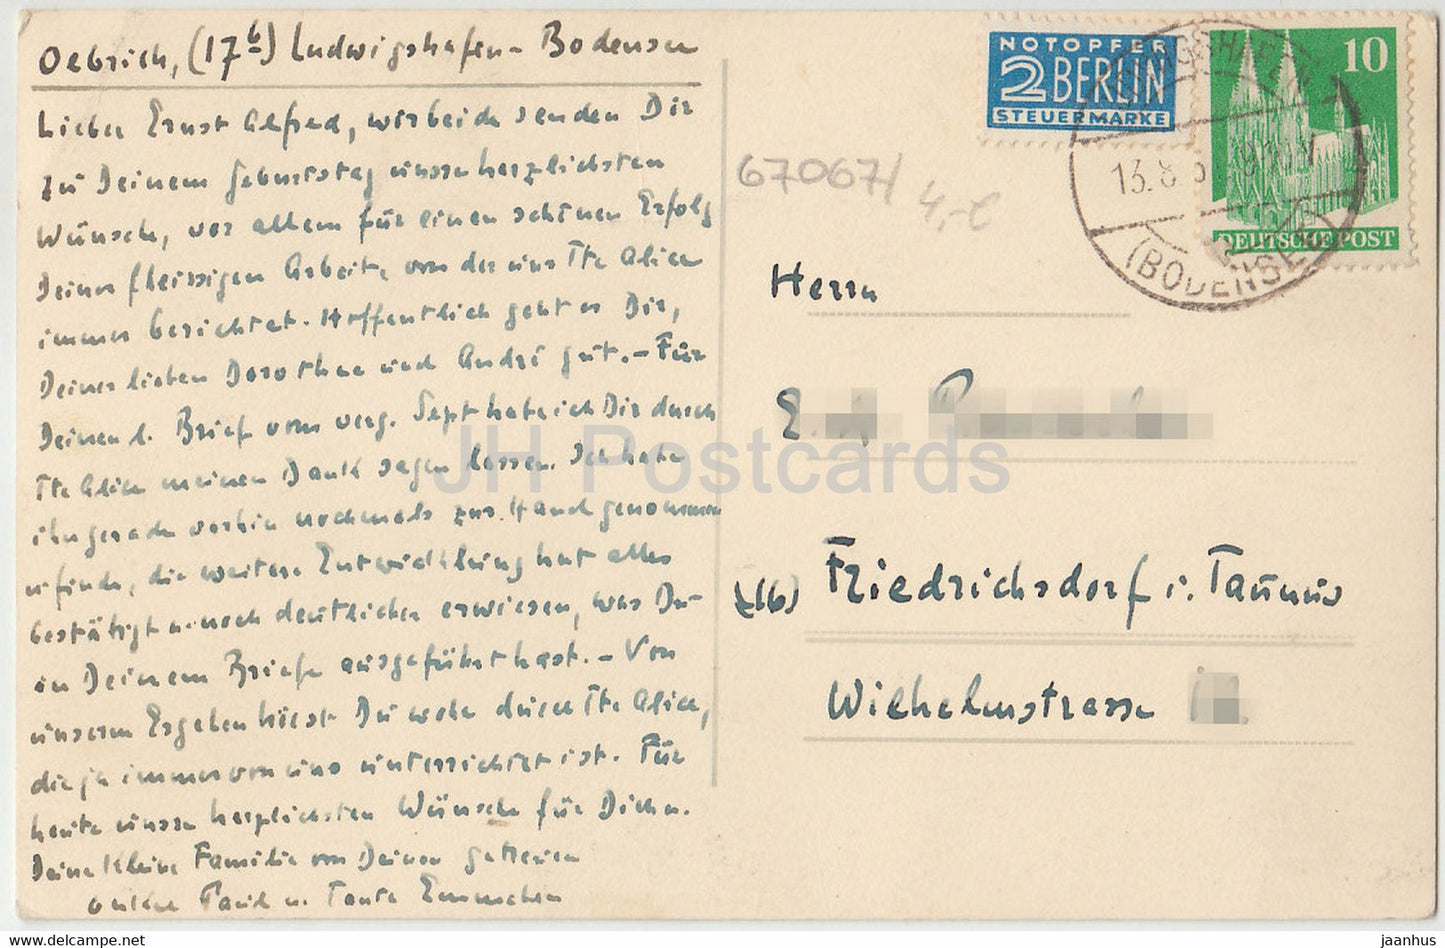 Oebrich, (17b) Ludwigshafen - Bodensee
Lieber Ernst Alfred, wir beide senden Dir
zu Deinem Geburtstag unsere herzlichsten
Wünsche, vor allem für einen schönen Erfolg
Deiner fleissigen Arbeit, von der uns Tte Alice
immer berichtet. Hoffentlich geht es Dir,
Deiner lieben Dorothee und André gut. - Für
Deinen l. Brief vom verg. Sept habe ich Dir durch
Tte Alice meinen Dank sagen lassen. Ich habe
ihn gerade vorhin nochmals zur Hand genommen
u finde, die weitere Entwicklung hat alles
bestätigt u. noch deutlicher erwiesen, was Du
in Deinem Briefe ausgeführt hast. - Von
unserm Ergehen hörst Du wohl durch Tte Alice,
die ja immer von uns unterrichtet ist. Für
heute unsere herzlichsten Wünsche für Dich u.
Deine kleine Familie von Deinen getreuen
Onkel Paul u. Tante Emmchen
NOTOPFER
2 BERLIN
STEUERMARKE
10
DEUTSCHE POST
LUDWIGSHAFEN
13.8.5
(BODENSEE)
67067/
4,-€
Herrn
(16) Friedrichsdorf i. Taunus
Wilhelmstrasse
JH Postcards
jaanhus @ delcampe.net